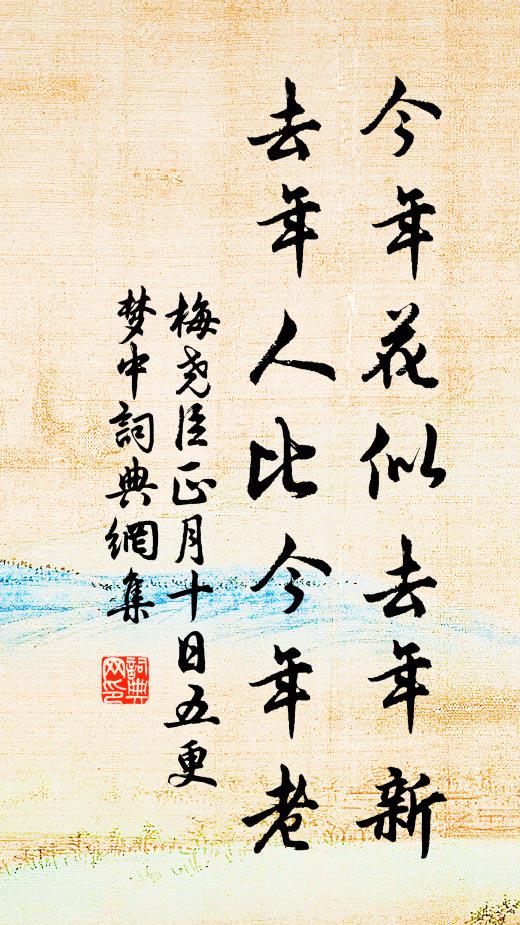 今年花似去年新
去年人比今年老
梅尧臣正月十日五更
梦中詞典網集
詞典
网印